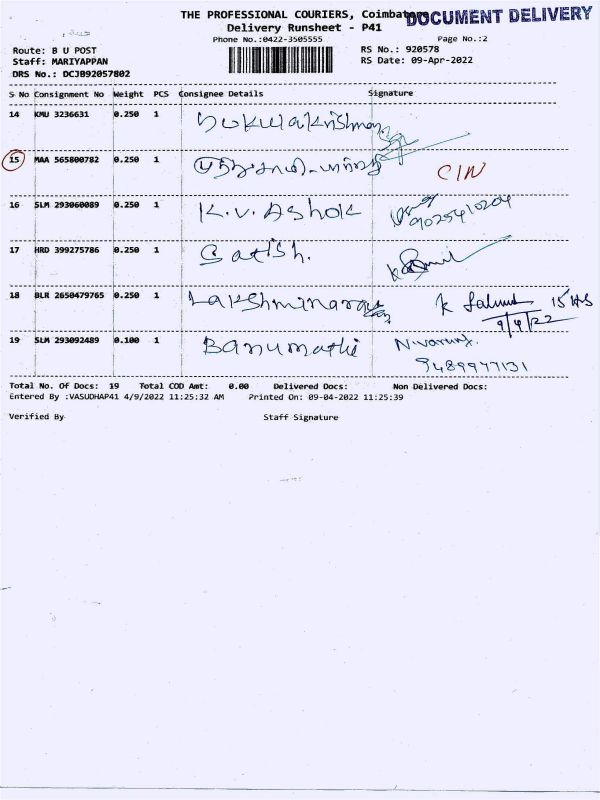 THE PROFESSIONAL COURIERS, Coimbatore
DOCUMENT DELIVERY
Delivery Runsheet - P41
Phone No.:0422-3505555
Page No.:2
Route: B U POST
Staff: MARIYAPPAN
DRS No.: DCJB92057802
RS No.: 920578
RS Date: 09-Apr-2022
S No Consignment No Weight PCS Consignee Details Signature
14 KMU 3236631 0.250 1
15 MAA 565800782 0.250 1 CIN
16 SLM 293060089 0.250 1 K.V. Ashok 9025410204
17 HRD 399275786 0.250 1 Satish.
18 BLR 2650479765 0.250 1 15 Hs
9/4/22
19 SLM 293092489 0.100 1 Banumathi
9489977131
Total No. Of Docs: 19 Total COD Amt: 0.00 Delivered Docs: Non Delivered Docs:
Entered By :VASUDHAP41 4/9/2022 11:25:32 AM Printed On: 09-04-2022 11:25:39
Verified By Staff Signature